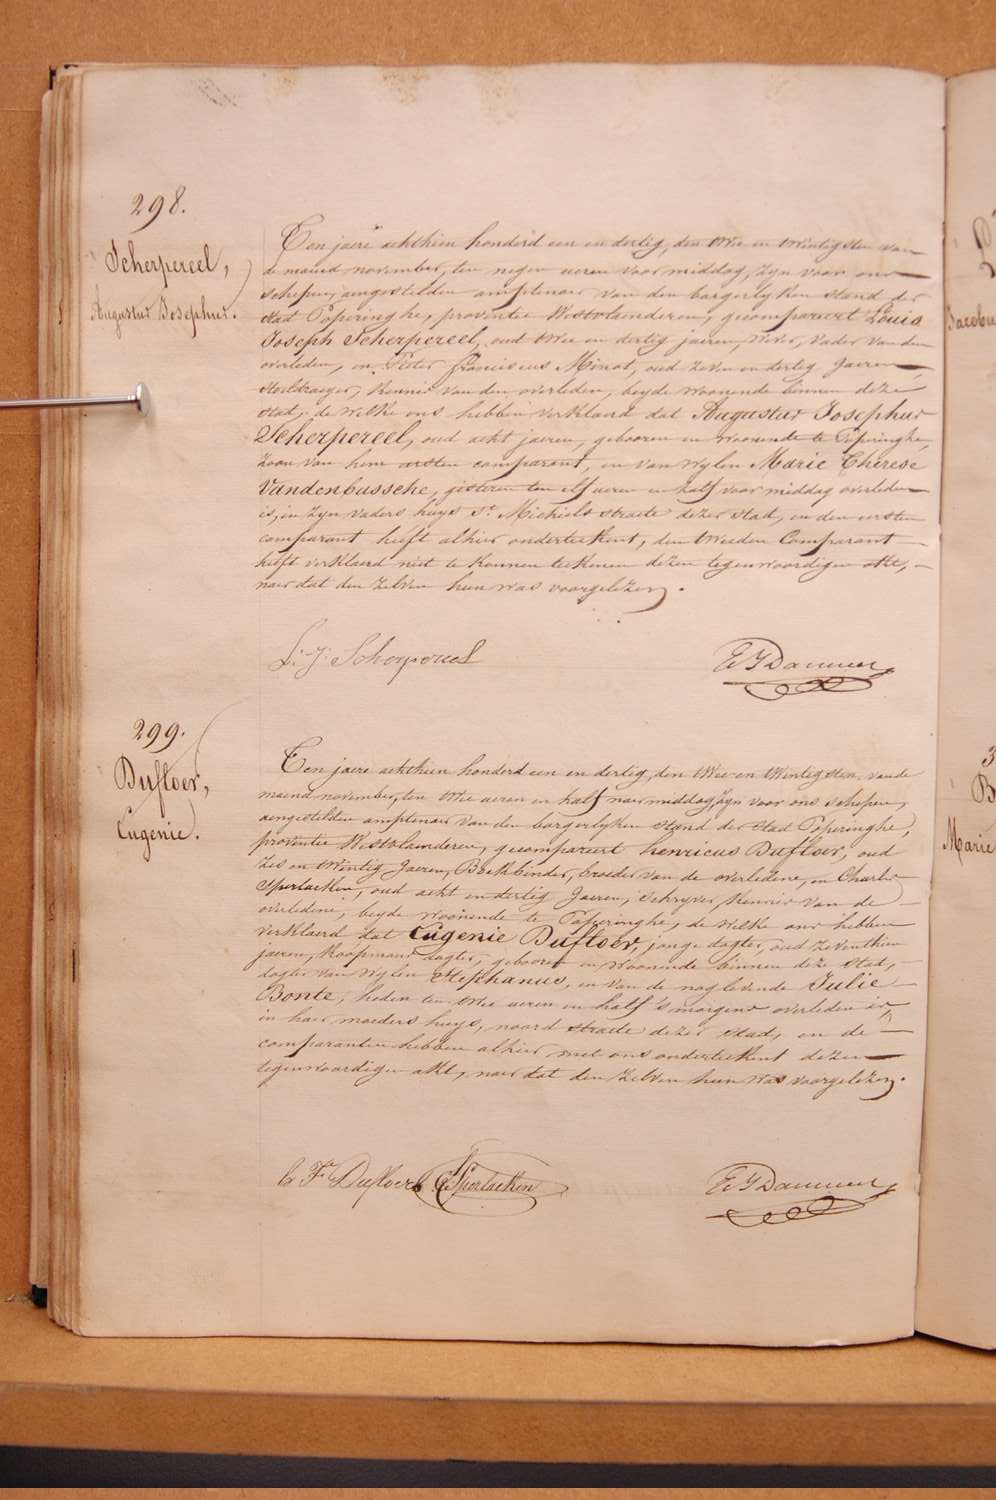 298.
Scherpereel,
Augustus Josephus.
Ten jaere achthien honderd een en dertig, den twee en twintigsten van
de maend november, ten negen ueren voormiddag, zyn voor ons
schepen, aengestelden amptenaer van den borgerlyken stand der
stad Poperinghe, provintie Westvlaenderen, gecompareert Louis
Joseph Scherpereel, oud twee en dertig jaeren, wever, vader van den
overleden, en Pieter franciscus Minot, oud zeven en dertig Jaeren
stoeldraeger, kennis van den overleden, beyde woonende binnen deze
stad, de welke ons hebben verklaerd dat Augustus Josephus
Scherpereel, oud acht jaeren, gebooren en woonende te Poperinghe,
zoon van hem eersten comparant, en van wylen Marie Therese
Vandenbussche, gisteren ten elf ueren en half voormiddag overleden
is, in zyn vaders huys St. Michiels straete dezer stad, en den eersten
comparant heeft alhier onderteekent, den tweeden Comparant
heeft verklaerd niet te konnen teekenen dezen tegenwoordigen akte,
naer dat den zelven hun was voorgelezen.
L. J. Scherpereel
299.
Dufloer,
Eugenie.
Ten jaere achthien honderd een en dertig, den twee en twintigsten, van de
maend november, ten twee ueren en half naermiddag, zyn voor ons schepen,
aengestelden amptenaer van den borgerlyken stand der stad Poperinghe,
provintie Westvlaenderen, gecompareert henricus Dufloer, oud
zes en twintig Jaeren, Boekbinder, broeder van de overledene, en Charles
Sperlaeken, oud acht en dertig Jaeren, schryver, kennis van de
overledene, beyde woonende te Poperinghe, de welke ons hebben
verklaerd dat Eugenie Dufloer, jonge dogter, oud zeventhien
jaeren, koopmans dogter, gebooren en woonende binnen deze stad,
dogter van wylen Stephanus, en van de nog levende Julie
Bonte, heden ten twee ueren en half 's morgens overleden is,
in haer moeders huys, noord straete dezer stad, en de
comparanten hebben alhier met ons onderteekent dezen
tegenwoordigen akt, naer dat den zelven hun was voorgelezen.
Dufloer C. Sperlaeken
Marie